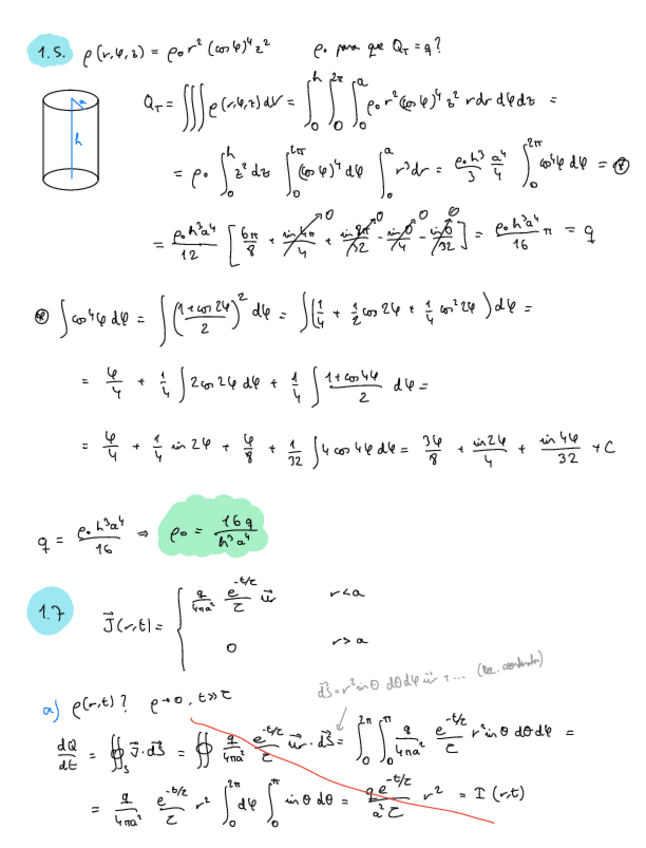 1.5. ρ(r,φ,z) = ρ₀ r² (cos φ)⁴ z²   ρ₀ para que Q_T = q?
a
h
Q_T = ∭ ρ(r,φ,z) dV = ∫₀^h ∫₀^2π ∫₀^a ρ₀ r² (cos φ)⁴ z² r dr dφ dz =
= ρ₀ ∫₀^h z² dz ∫₀^2π (cos φ)⁴ dφ ∫₀^a r³ dr = ρ₀h³/3 a⁴/4 ∫₀^2π cos⁴φ dφ = ⊛
= ρ₀h³a⁴/12 [6π/8 + sin 4π/4 + sin 8π/32 - sin 0/4 - sin 0/32] = ρ₀h³a⁴/16 π = q
⊛ ∫cos⁴φ dφ = ∫((1+cos 2φ)/2)² dφ = ∫(1/4 + 1/2 cos 2φ + 1/4 cos² 2φ) dφ =
= φ/4 + 1/4 ∫2 cos 2φ dφ + 1/4 ∫(1+cos 4φ)/2 dφ =
= φ/4 + 1/4 sin 2φ + φ/8 + 1/32 ∫4 cos 4φ dφ = 3φ/8 + sin 2φ/4 + sin 4φ/32 + C
q = ρ₀h³a⁴/16 ⇒ ρ₀ = 16q/h³a⁴
1.7 J⃗(r,t) = { q/4πa² e^(-t/τ)/τ u⃗r   r<a
0   r>a
dS⃗ = r² sin θ dθ dφ u⃗r + ...
a) ρ(r,t)? ρ→0, t≫τ
dQ/dt = ∯_S J⃗·dS⃗ = ∯ q/4πa² e^(-t/τ)/τ u⃗r · dS⃗ = ∫₀^2π ∫₀^π q/4πa² e^(-t/τ)/τ r² sin θ dθ dφ =
= q/4πa² e^(-t/τ)/τ r² ∫₀^2π dφ ∫₀^π sin θ dθ = q e^(-t/τ)/a²τ r² = I(r,t)